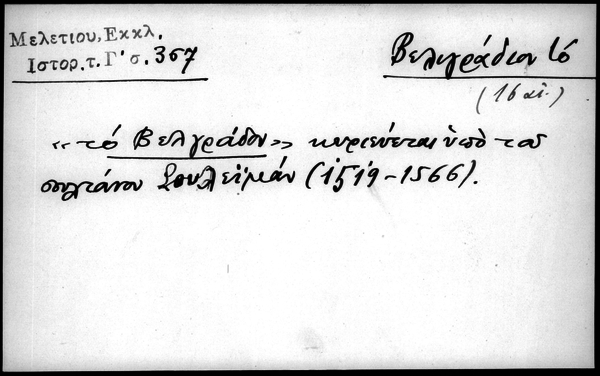 Μελετίου, Εκκλ.
Ιστορ. τ. Γ' σ. 357
Βελιγράδιον τό
(16 αἰ.)
«τό Βελγράδον» κυριεύεται ὑπό τοῦ
σουλτάνου Σουλεϊμάν (1519-1566).